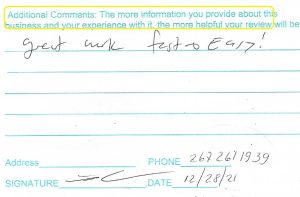 Additional Comments: The more information you provide about this
business and your experience with it, the more helpful your review will be
great work fast & Easy!
Address PHONE 267 261 1939
SIGNATURE DATE 12/28/21